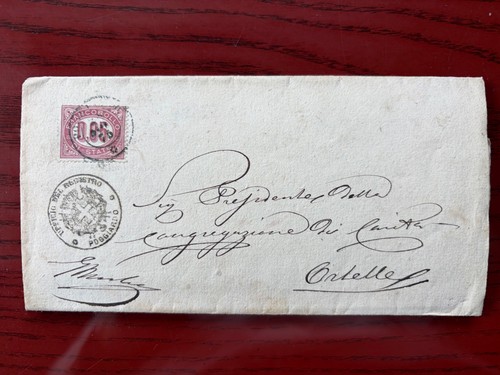 FRANCOBOLLO
0.05
STATO
UFFICIO DEL REGISTRO
POGGIARDO
Sig Presidente della
Congregazione di Carità
Ortelle